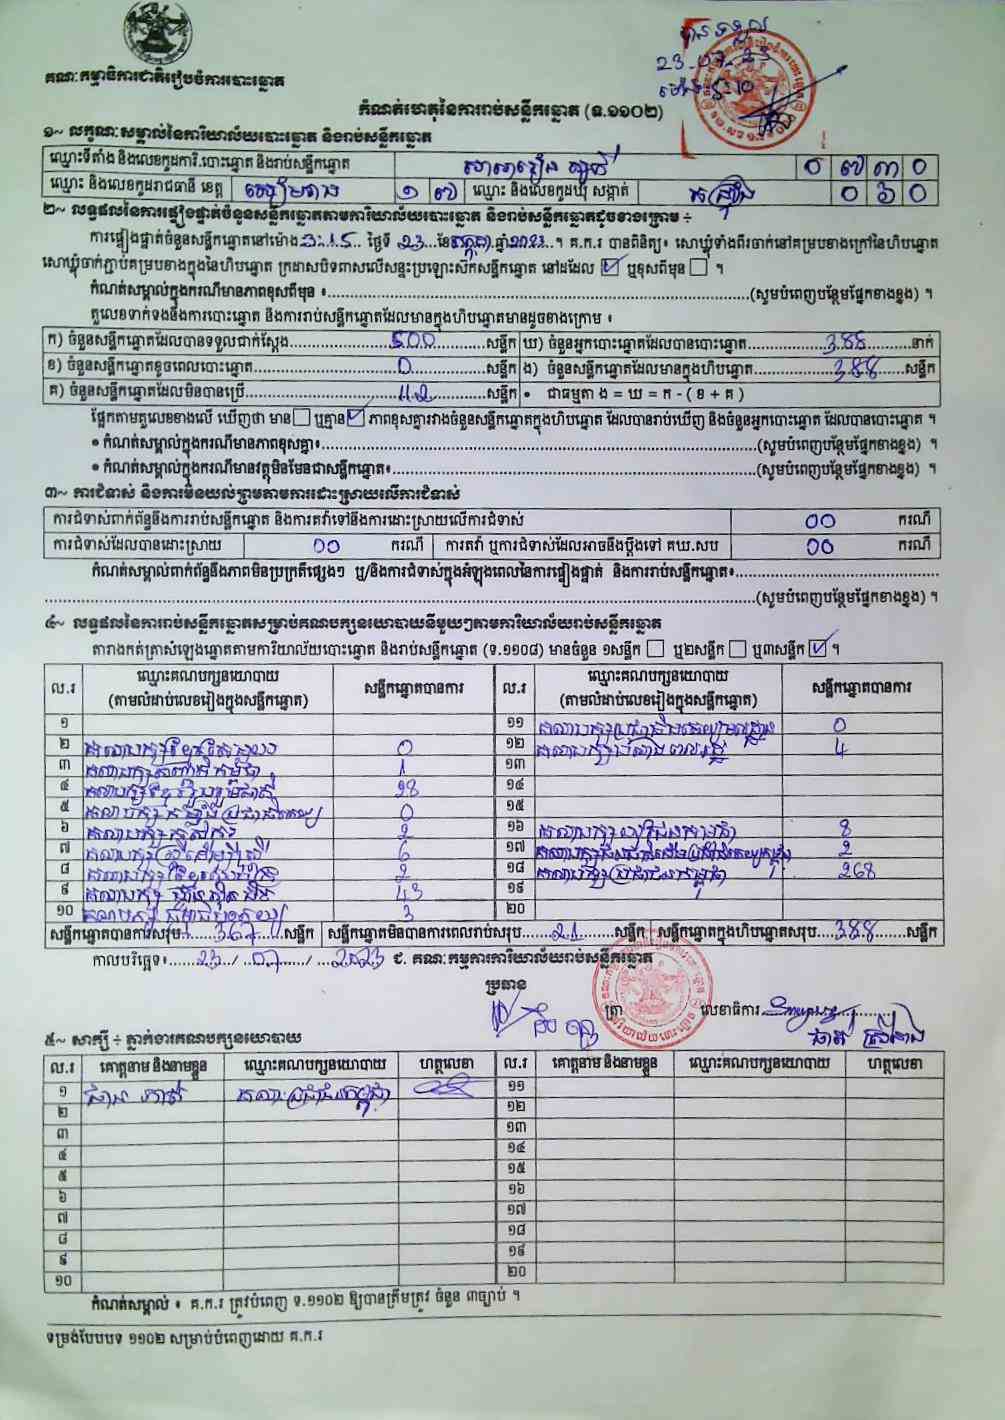 បានទទួល
23-07-23
ម៉ោង 5:10
គណៈកម្មាធិការជាតិរៀបចំការបោះឆ្នោត
កំណត់ហេតុនៃការរាប់សន្លឹកឆ្នោត (ទ.១១០២)
១~ លក្ខណៈសម្គាល់នៃការិយាល័យបោះឆ្នោត និងរាប់សន្លឹកឆ្នោត
ឈ្មោះទីតាំង និងលេខកូដការិ.បោះឆ្នោត និងរាប់សន្លឹកឆ្នោត សាលារៀន ០ ៧ ៣ ០
ឈ្មោះ និងលេខកូដរាជធានី ខេត្ត សៀមរាប ១ ៧ ឈ្មោះ និងលេខកូដឃុំ សង្កាត់ ០ ៦ ០
២~ លទ្ធផលនៃការផ្ទៀងផ្ទាត់ចំនួនសន្លឹកឆ្នោតតាមការិយាល័យបោះឆ្នោត និងរាប់សន្លឹកឆ្នោតដូចខាងក្រោម ÷
ការផ្ទៀងផ្ទាត់ចំនួនសន្លឹកឆ្នោតនៅម៉ោង 3:15 ថ្ងៃទី 23 ខែ កក្កដា ឆ្នាំ 2023 ។ គ.ក.រ បានពិនិត្យ៖ សោឃ្លុំទាំងពីរចាក់នៅគម្របខាងក្រៅនៃហិបឆ្នោត
សោឃ្លុំចាក់ភ្ជាប់គម្របខាងក្នុងនៃហិបឆ្នោត ក្រដាសបិទពាសលើសន្ទះប្រឡោះស៊កសន្លឹកឆ្នោត នៅដដែល ☑ ឬខុសពីមុន ☐ ។
កំណត់សម្គាល់ក្នុងករណីមានភាពខុសពីមុន ៖ (សូមបំពេញបន្ថែមផ្នែកខាងខ្នង) ។
តួលេខទាក់ទងនឹងការបោះឆ្នោត និងការរាប់សន្លឹកឆ្នោតដែលមានក្នុងហិបឆ្នោតមានដូចខាងក្រោម ៖
ក) ចំនួនសន្លឹកឆ្នោតដែលបានទទួលជាក់ស្តែង 500 សន្លឹក ឃ) ចំនួនអ្នកបោះឆ្នោតដែលបានបោះឆ្នោត 388 នាក់
ខ) ចំនួនសន្លឹកឆ្នោតខូចពេលបោះឆ្នោត 0 សន្លឹក ង) ចំនួនសន្លឹកឆ្នោតដែលមានក្នុងហិបឆ្នោត 388 សន្លឹក
គ) ចំនួនសន្លឹកឆ្នោតដែលមិនបានប្រើ 112 សន្លឹក • ជាធម្មតា ង = ឃ = ក - ( ខ + គ )
ផ្អែកតាមតួលេខខាងលើ ឃើញថា មាន ☐ ឬគ្មាន ☑ ភាពខុសគ្នារវាងចំនួនសន្លឹកឆ្នោតក្នុងហិបឆ្នោត ដែលបានរាប់ឃើញ និងចំនួនអ្នកបោះឆ្នោត ដែលបានបោះឆ្នោត ។
• កំណត់សម្គាល់ក្នុងករណីមានភាពខុសគ្នា៖ (សូមបំពេញបន្ថែមផ្នែកខាងខ្នង) ។
• កំណត់សម្គាល់ក្នុងករណីមានវត្ថុមិនមែនជាសន្លឹកឆ្នោត៖ (សូមបំពេញបន្ថែមផ្នែកខាងខ្នង) ។
៣~ ការជំទាស់ និងការមិនយល់ព្រមតាមការដោះស្រាយលើការជំទាស់
ការជំទាស់ពាក់ព័ន្ធនឹងការរាប់សន្លឹកឆ្នោត និងការតវ៉ាទៅនឹងការដោះស្រាយលើការជំទាស់ 00 ករណី
ការជំទាស់ដែលបានដោះស្រាយ 00 ករណី ការតវ៉ា ឬការជំទាស់ដែលអាចនឹងប្តឹងទៅ គឃ.សប 00 ករណី
កំណត់សម្គាល់ពាក់ព័ន្ធនឹងភាពមិនប្រក្រតីផ្សេងៗ ឬ/និងការជំទាស់ក្នុងអំឡុងពេលនៃការផ្ទៀងផ្ទាត់ និងការរាប់សន្លឹកឆ្នោត៖
(សូមបំពេញបន្ថែមផ្នែកខាងខ្នង) ។
៤~ លទ្ធផលនៃការរាប់សន្លឹកឆ្នោតសម្រាប់គណបក្សនយោបាយនីមួយៗតាមការិយាល័យរាប់សន្លឹកឆ្នោត
តារាងកត់ត្រាសំឡេងឆ្នោតតាមការិយាល័យបោះឆ្នោត និងរាប់សន្លឹកឆ្នោត (ទ.១១០៨) មានចំនួន ១សន្លឹក ☐ ឬ២សន្លឹក ☐ ឬ៣សន្លឹក ☑ ។
ល.រ ឈ្មោះគណបក្សនយោបាយ (តាមលំដាប់លេខរៀងក្នុងសន្លឹកឆ្នោត) សន្លឹកឆ្នោតបានការ ល.រ ឈ្មោះគណបក្សនយោបាយ (តាមលំដាប់លេខរៀងក្នុងសន្លឹកឆ្នោត) សន្លឹកឆ្នោតបានការ
១ ១១ គណបក្ស 0
២ គណបក្ស 0 ១២ គណបក្ស 4
៣ គណបក្ស 1 ១៣
៤ គណបក្ស 18 ១៤
៥ គណបក្ស 0 ១៥
៦ គណបក្ស 2 ១៦ គណបក្ស 8
៧ គណបក្ស 6 ១៧ គណបក្ស 2
៨ គណបក្ស 2 ១៨ គណបក្សប្រជាជនកម្ពុជា 268
៩ គណបក្ស ហ្វ៊ុនស៊ិនប៉ិច 43 ១៩
១០ គណបក្ស 3 ២០
សន្លឹកឆ្នោតបានការសរុប 367 សន្លឹក សន្លឹកឆ្នោតមិនបានការពេលរាប់សរុប 21 សន្លឹក សន្លឹកឆ្នោតក្នុងហិបឆ្នោតសរុប 388 សន្លឹក
កាលបរិច្ឆេទ៖ 23 / 07 / 2023 ជ. គណៈកម្មការការិយាល័យរាប់សន្លឹកឆ្នោត
ប្រធាន
ត្រា លេខាធិការ
៥~ សាក្សី ÷ ភ្នាក់ងារគណបក្សនយោបាយ
ល.រ គោត្តនាម និងនាមខ្លួន ឈ្មោះគណបក្សនយោបាយ ហត្ថលេខា ល.រ គោត្តនាម និងនាមខ្លួន ឈ្មោះគណបក្សនយោបាយ ហត្ថលេខា
១ គណបក្សប្រជាជនកម្ពុជា ១១
២ ១២
៣ ១៣
៤ ១៤
៥ ១៥
៦ ១៦
៧ ១៧
៨ ១៨
៩ ១៩
១០ ២០
កំណត់សម្គាល់ ៖ គ.ក.រ ត្រូវបំពេញ ទ.១១០២ ឱ្យបានត្រឹមត្រូវ ចំនួន ៣ច្បាប់ ។
ទម្រង់បែបបទ ១១០២ សម្រាប់បំពេញដោយ គ.ក.រ